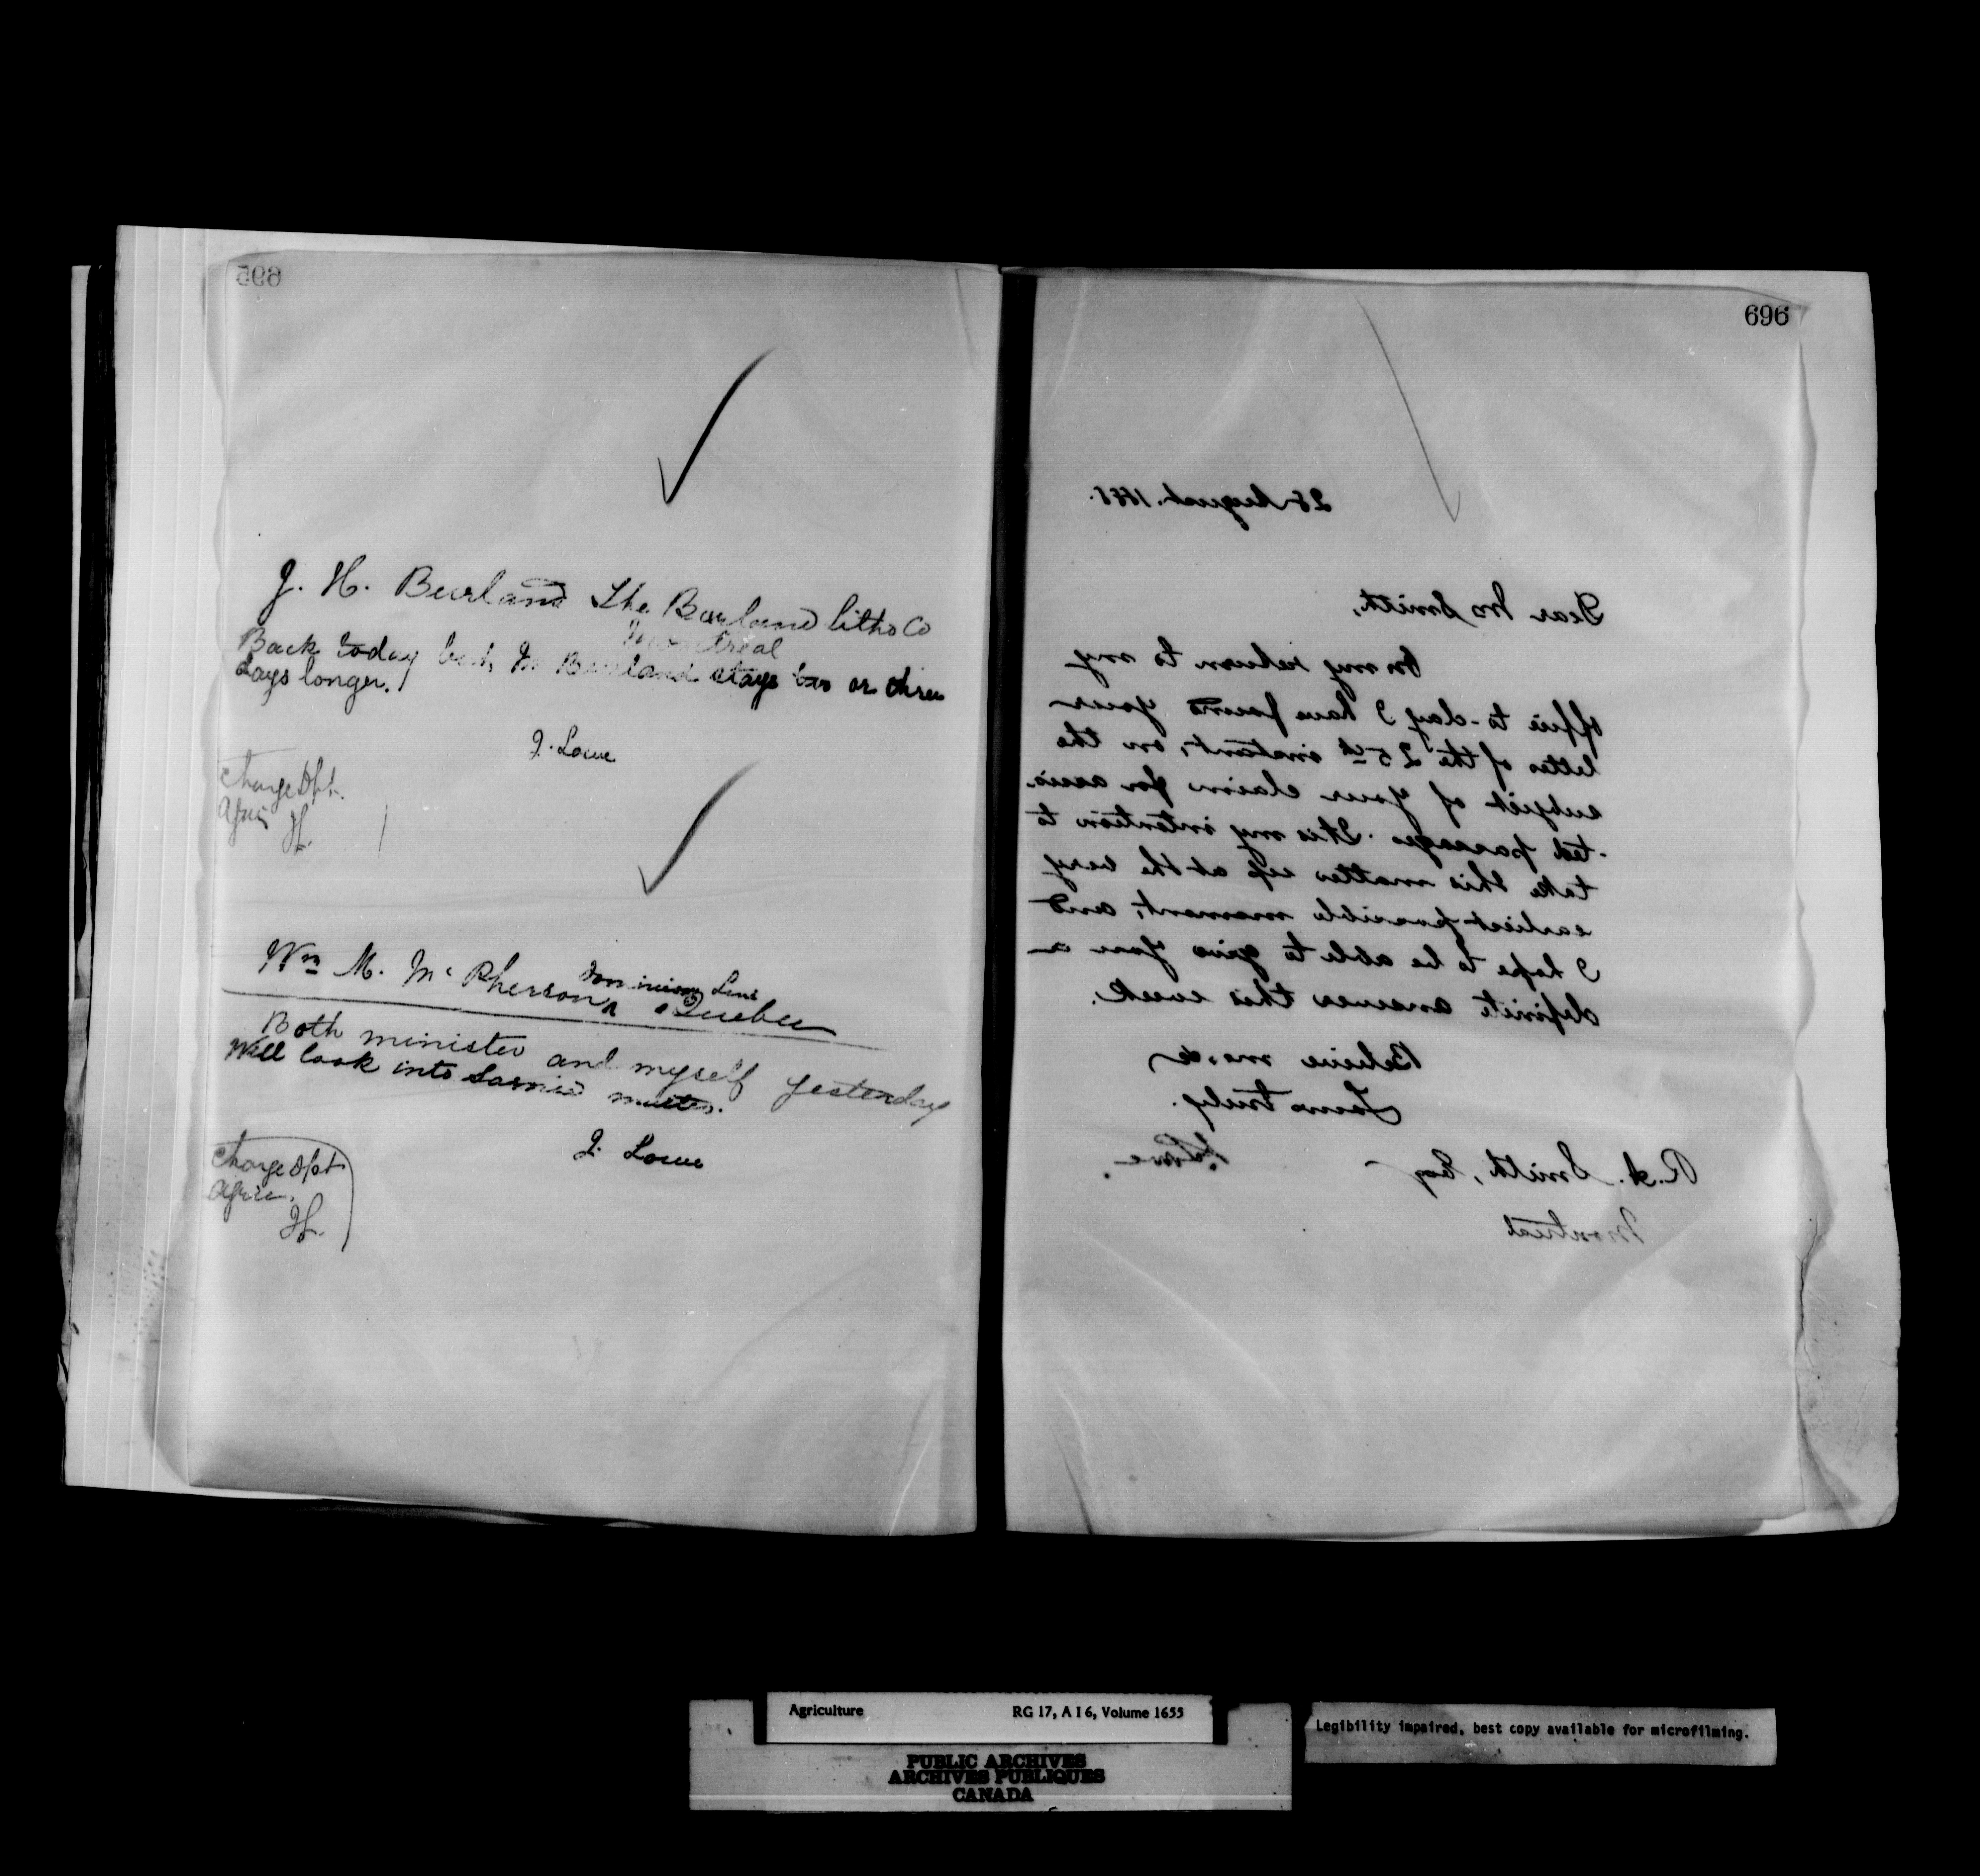 695
J. H. Burland The Burland litho Co
Montreal
Back today Mr Burland stays two or three
days longer.
J. Lowe
Charge Dpt.
Agric
JL.
Wm M. McPherson
Dominion Line
Quebec
Both minister and myself yesterday
Will look into Sarnia matter.
J. Lowe
Charge Dpt
Agric.
JL.
696
28 August. 188
Dear Mr Smith,
On my return to my
office to-day I have found your
letter of the 25th instant, on the
subject of your claim for assis-
-ted passages. It is my intention to
take this matter up at the very
earliest possible moment, and
I hope to be able to give you a
definite answer this week.
Believe me, dr
Yours truly.
J. Lowe
R. A. Smith, Esq
Montreal
Agriculture RG 17, A I 6, Volume 1655
PUBLIC ARCHIVES
ARCHIVES PUBLIQUES
CANADA
Legibility impaired, best copy available for microfilming.